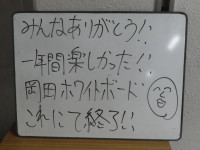 みんなありがとう!!
一年間楽しかった!!
岡田ホワイトボード
これにて終了!!